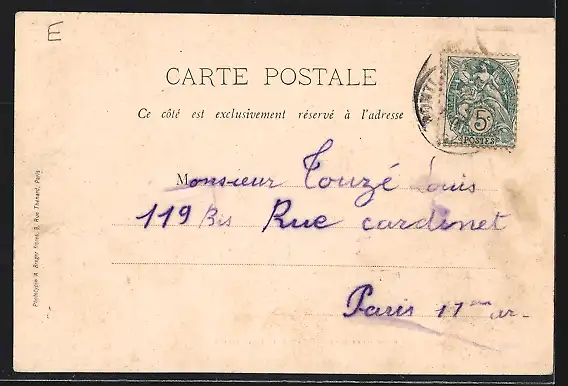 E
CARTE POSTALE
Ce côté est exclusivement réservé à l'adresse
5c
POSTES
Monsieur Touzé Louis
119 Bis Rue cardinet
Paris 17me ar-
Phototypie A. Breger frères, 9, Rue Thénard, Paris